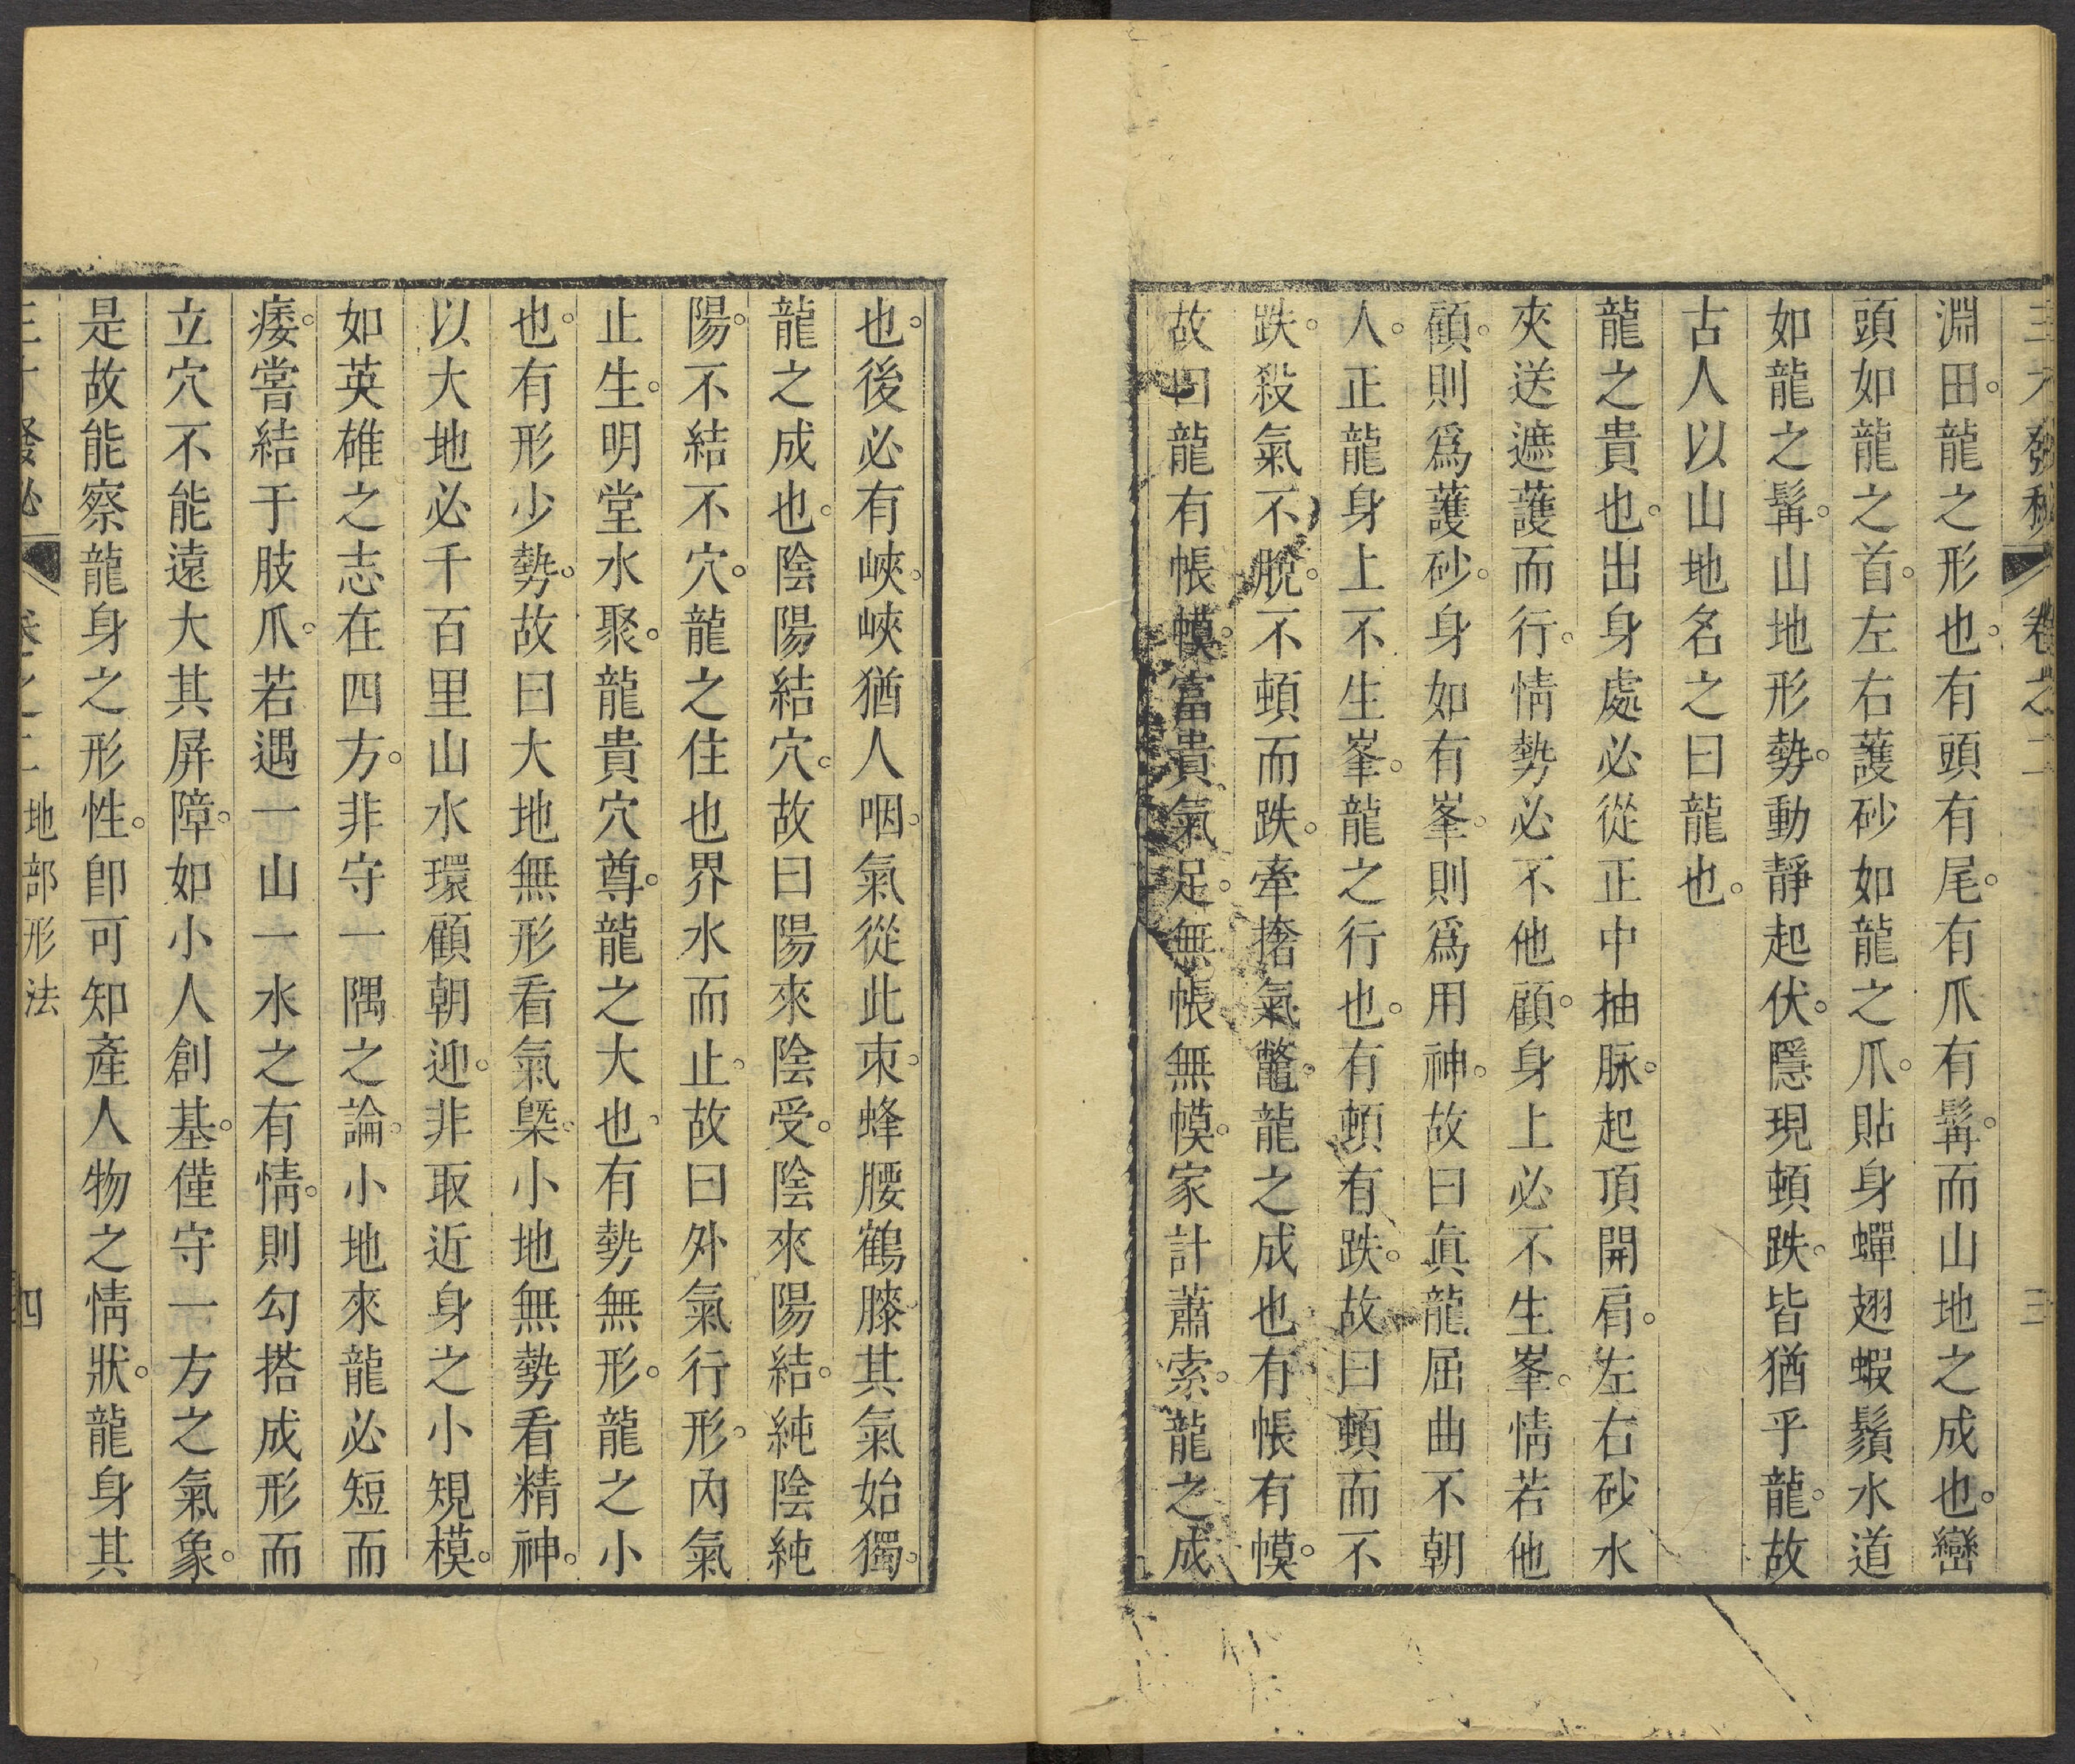 三才發秘　卷之二　三
淵田。龍之形也。有頭有尾。有爪有髯。而山地之成也。巒
頭如龍之首。左右護砂如龍之爪。貼身蟬翅蝦鬚水道
如龍之髯。山地形勢。動靜起伏。隱現頓跌。皆猶乎龍。故
古人以山地名之曰龍也。
龍之貴也。出身處必從正中抽脉。起頂開肩。左右砂水
夾送遮護而行。情勢必不他顧。身上必不生峯。情若他
顧。則爲護砂。身如有峯。則爲用神。故曰眞龍屈曲不朝
人。正龍身上不生峯。龍之行也。有頓有跌。故曰頓而不
跌。殺氣不脫。不頓而跌。牽撦氣鼈。龍之成也有帳有幙。
故曰龍有帳幙。富貴氣足。無帳無幙。家計蕭索。龍之成
也。後必有峽。峽猶人咽。氣從此朿。蜂腰鶴膝。其氣始獨。
龍之成也。陰陽結穴。故曰陽來陰受。陰來陽結。純陰純
陽。不結不穴。龍之住也界水而止。故曰外氣行形。內氣
止生。明堂水聚。龍貴穴尊。龍之大也。有勢無形。龍之小
也。有形少勢。故曰大地無形看氣槩。小地無勢看精神。
以大地必千百里山水環顧朝迎。非取近身之小規模。
如英雄之志在四方。非守一隅之論。小地來龍必短而
痿。嘗結于肢爪。若遇一山一水之有情。則勾搭成形而
立穴不能遠大其屛障。如小人創基。僅守一方之氣象。
是故能察龍身之形性。卽可知產人物之情狀。龍身其
三才發秘　卷之二　地部形法　四